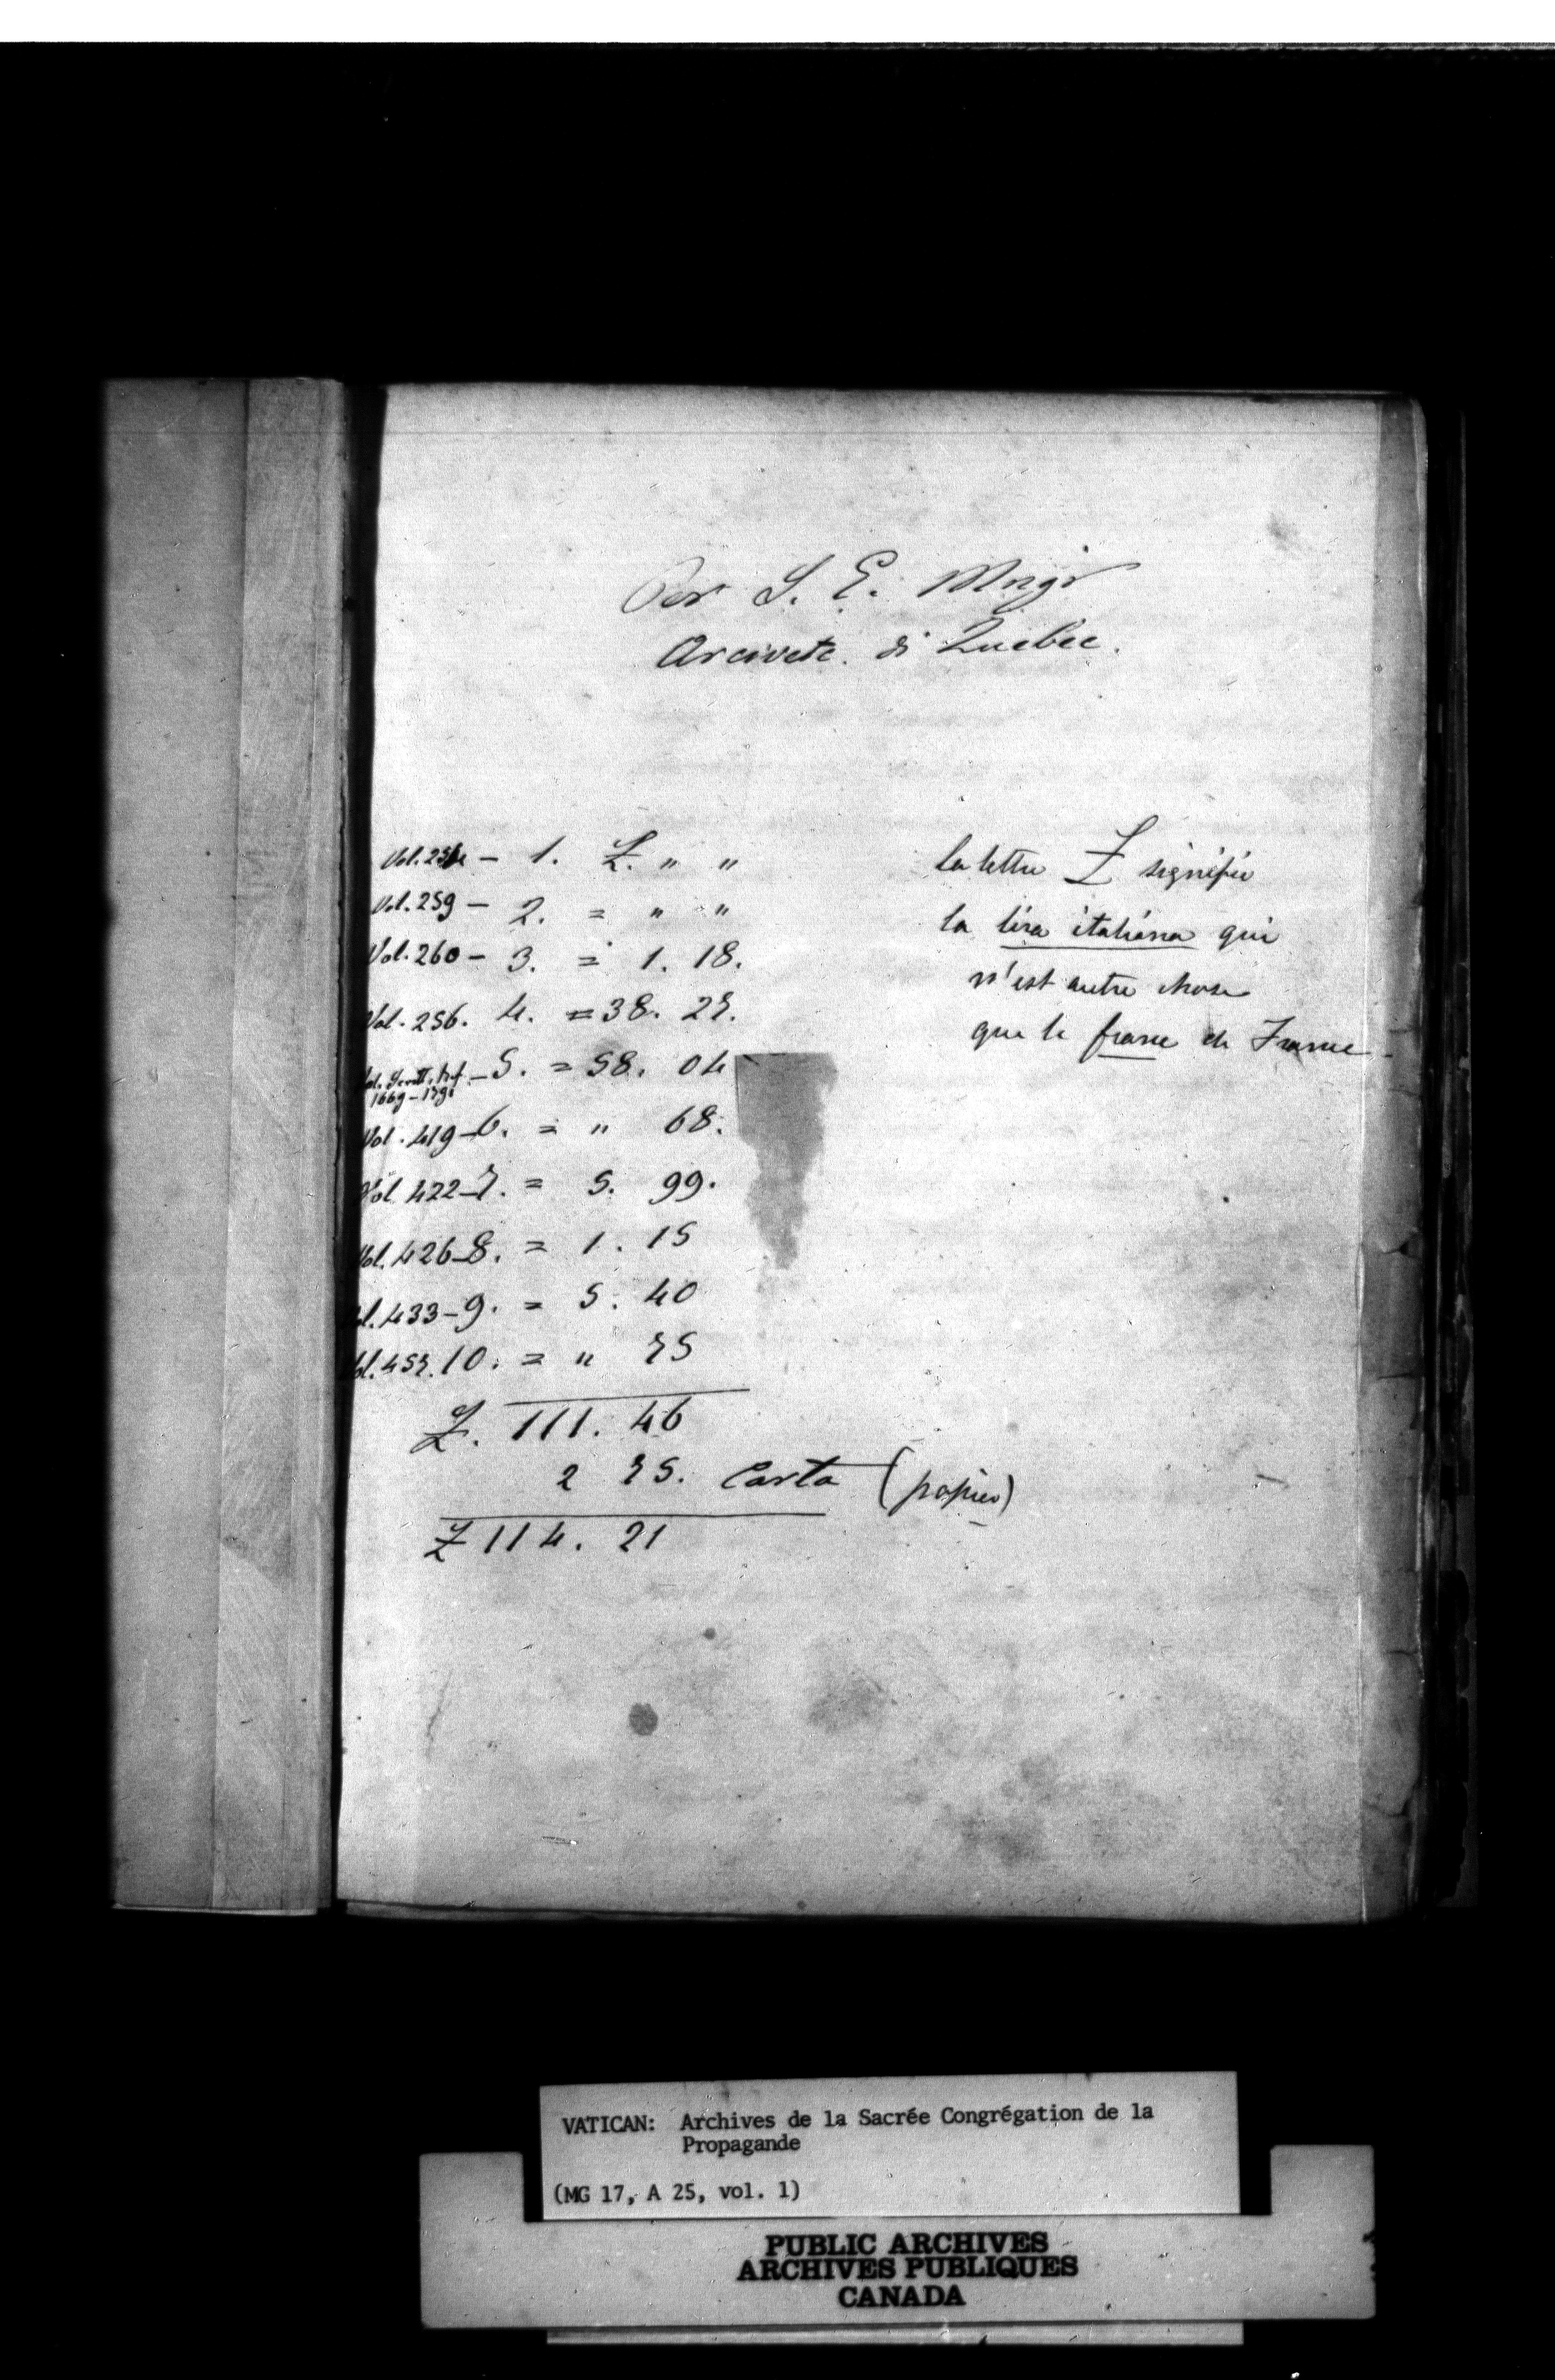 Per S. E. Mngr
Arciveſc. di Quebec.
1. £. " "
Vol. 259 - 2. = " "
Vol. 260 - 3. = 1. 18.
Vol. 256. 4. = 38. 27.
5. = 58. 04
Vol. 419 - 6. = " 68.
Vol. 422 - 7. = 5. 99.
Vol. 426 - 8. = 1. 15
Vol. 433 - 9. = 5. 40
Vol. 457. 10. = " 75
£. 111. 46
2 75. Carta (papier)
£ 114. 21
la lettre £ signifie
la lira italiana qui
n'est autre chose
que le franc de France
VATICAN: Archives de la Sacrée Congrégation de la
Propagande
(MG 17, A 25, vol. 1)
PUBLIC ARCHIVES
ARCHIVES PUBLIQUES
CANADA